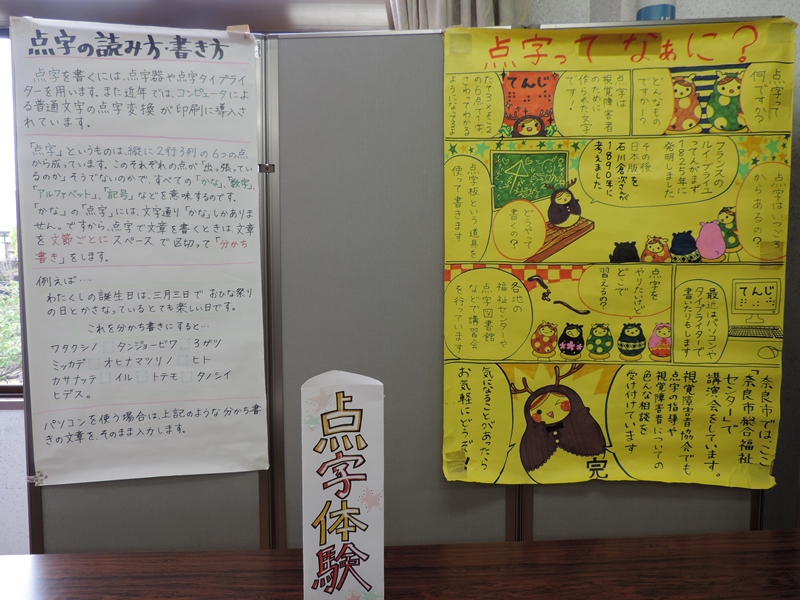 点字の読み方・書き方
点字を書くには、点字器や点字タイプライ
ターを用います。また近年では、コンピュータによ
る普通文字の点字変換が印刷に導入さ
れています。
「点字」というものは、縦に2行3列の6つの点か
ら成っています。このそれぞれの点が「出っ張ってい
るのか」そうでないのかで、すべての「かな」、「数字」、
「アルファベット」、「記号」などを意味するのです。
「かな」の「点字」には、文字通り「かな」しかありま
せん。ですから、点字で文章を書くときは、文章
を文節ごとにスペースで区切って「分かち
書き」をします。
例えば…
わたくしの誕生日は、三月三日でおひな祭り
の日とかさなっているとても楽しい日です。
これを分かち書きにすると…
ワタクシノ タンジョービワ 3ガツ
ミッカデ オヒナマツリノ ヒト
カサナッテ イル トテモ タノシイ
ヒデス。
パソコンを使う場合は、上記のような分かち書
きの文章を、そのまま入力します。
点字体験
点字ってなぁに?
点字って
何ですか?
どんなもの
ですかー?
点字は
視覚障害者
のために
作られた文字
です!
てんじ
たて3×よこ2
の6点でできて
さわってわかる
ようになってるよ
点字はいつごろ
からあるの?
フランスの
ルイ・ブライユ
って人がまず
1825年に
発明しました
その後
日本版を
石川倉次さんが
1890年に
考えました
どうやって
書くの?
点字板という道具を
使って書きます
最近はパソコンや
タイプライターで
書いたりもします
てんじ
点字を
やりたいけど
どこで
習えるの?
へぇ〜
各地の
福祉センターや
点字図書館
などで講習会
を行っています
奈良市ではここ
「奈良市総合福祉
センター」で
講演会をしています。
視覚障害者協会でも
点字の指導や
視覚障害者についての
色んな相談を
受け付けています
気になることがあったら
お気軽にどうぞ!
完